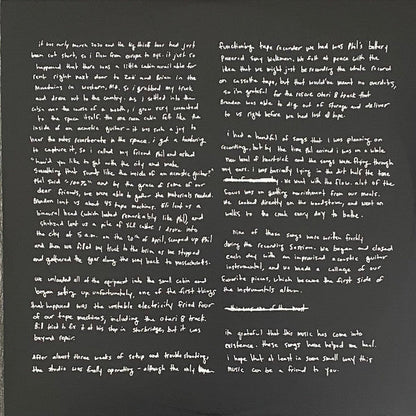 it was early march 2020 and the big thief tour had just
been cut short, so i flew from europe to nyc. it just so
happened that there was a little cabin available for
rent right next door to Zoë and Brian in the
mountains in western, MA. So i grabbed my truck
and drove out to the country. As i settled into them
cabin over the course of a month, i grew very connected
to the space itself. the one room cabin felt like the
inside of an acoustic guitar - it was such a joy to
hear the notes reverberate in the space. i got a hankering
to capture it. so i called my friend Phil and asked
"would you like to get out of the city and make
something that sounds like the inside of an acoustic guitar"
Phil said "100%" and by the grace of some of our
dear friends, we were able to gather the materials needed.
Brandon lent us about 45 tape machines, Eli lent us a
binaural head (which looked remarkably like Phil), and
shahzad lent us a pile of XLR cables. i drove into
the city at 5 a.m. on the 20th of april, scooped up Phil
and then we filled my truck to the brim as we stopped
and gathered the gear along the way back to massachusetts.
we unloaded all of the equipment into the small cabin and
began setting up. Unfortunately, one of the first things
that happened was the unstable electricity fried four
of our tape machines, including the otari 8 track.
Bil tried to fix it at his shop in sturbridge, but it was
beyond repair.
After almost three weeks of setup and trouble shooting,
the studio was finally operating - although the only
functioning tape recorder we had was Phil's battery
powered sony walkman. We felt at peace with the
idea that we might just be recording the whole record
on cassette tape, but that would've meant no overdubs,
so i'm grateful for the rescue otari 8 track that
Brandon was able to dig out of storage and deliver
to us right before we had lost all hope.
i had a handful of songs that i was planning on
recording, but by the time Phil arrived i was on a whole
new level of heartsick and the songs were flying through
my ears. i was basically lying in the dirt half the time.
we went with the flow. a lot of the
focus was on getting nourishment from our meals.
We cooked directly on the woodstove, and went on
walks to the creek every day to bathe.
Nine of these songs were written freshly
during the recording session. We began and closed
each day with an improvised acoustic guitar
instrumental, and we made a collage of our
favorite pieces, which became the first side of
the instrumentals album.
im grateful that this music has come into
existence. these songs have helped me heal.
i hope that at least in some small way this
music can be a friend to you.